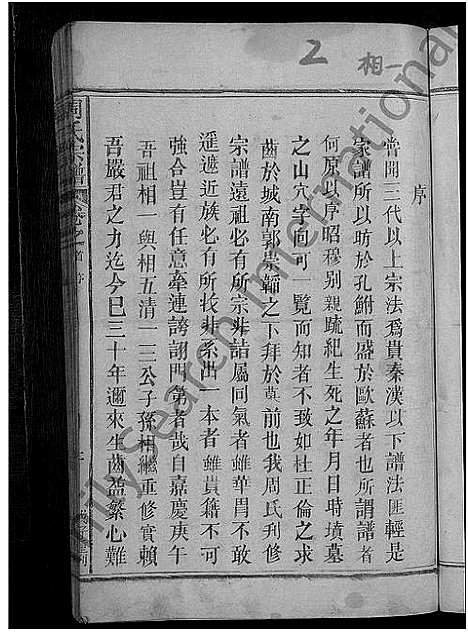 2
相一
序
嘗聞三代以上宗法爲貴秦漢以下譜法匪輕是
家譜所以昉於孔鮒而盛於歐蘇者也所謂譜者
何原以序昭穆別親疏紀生死之年月日時墳墓
之山穴字向可一覽而知者不致如杜正倫之求
齒於城南郭崇韜之下拜於 前也我周氏刋修
宗譜遠祖必有所宗非詰屬同氣者雖華胄不敢
遥遡近族必有所收非系出一本者雖貴籍不可
強合豈有任意牽連誇詡門第者哉自嘉慶庚午
吾祖相一與相五清一三公子孫相繼重修實賴
吾嚴君之力迄今巳三十年邇來生齒盈繁心難
周氏宗譜 卷之首 序